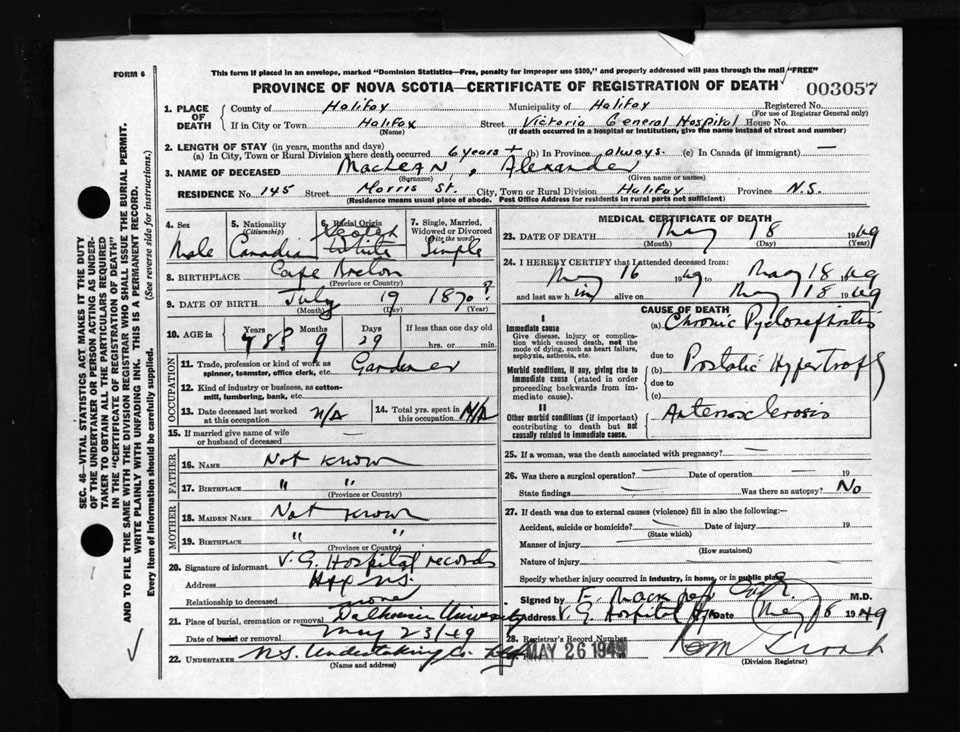 FORM 6
This form if placed in an envelope, marked "Dominion Statistics—Free, penalty for improper use $300," and properly addressed will pass through the mail "FREE"
PROVINCE OF NOVA SCOTIA—CERTIFICATE OF REGISTRATION OF DEATH
003057
1. PLACE OF DEATH
County of Halifax Municipality of Halifax Registered No.
(For use of Registrar General only)
If in City or Town Halifax Street Victoria General Hospital House No.
(Name) (If death occurred in a hospital or institution, give the name instead of street and number)
2. LENGTH OF STAY (in years, months and days)
(a) In City, Town or Rural Division where death occurred 6 years + (b) In Province always. (c) In Canada (if immigrant) —
3. NAME OF DECEASED MacLean, Alexander
(Surname) (Given name or names)
RESIDENCE No. 145 Street Morris St. City, Town or Rural Division Halifax Province N.S.
(Residence means usual place of abode. Post Office Address for residents in rural parts not sufficient)
4. Sex Male
5. Nationality (Citizenship) Canadian
6. Racial Origin Scotch White
7. Single, Married, Widowed or Divorced (Write the word) Single
8. BIRTHPLACE Cape Breton
(Province or Country)
9. DATE OF BIRTH July 19 1870?
(Month) (Day) (Year)
10. AGE in Years Months Days If less than one day old
78? 9 29 hrs. or min.
OCCUPATION
11. Trade, profession or kind of work as spinner, teamster, office clerk, etc. Gardener
12. Kind of industry or business, as cotton-mill, lumbering, bank, etc.
13. Date deceased last worked at this occupation N/A
14. Total yrs. spent in this occupation N/A
15. If married give name of wife or husband of deceased —
FATHER
16. NAME Not Known
17. BIRTHPLACE " "
(Province or Country)
MOTHER
18. MAIDEN NAME Not Known
19. BIRTHPLACE " "
(Province or Country)
20. Signature of informant V.G. Hospital records
Address Hfx N.S.
Relationship to deceased none
21. Place of burial, cremation or removal Dalhousie University
Date of burial or removal May 23/49
22. UNDERTAKER N.S. Undertaking Co.
(Name and address)
MEDICAL CERTIFICATE OF DEATH
23. DATE OF DEATH May 18 1949
(Month) (Day) (Year)
24. I HEREBY CERTIFY that I attended deceased from:
May 16 1949 to May 18 1949
and last saw him alive on May 18 1949
CAUSE OF DEATH
I
Immediate cause
Give disease, injury or complication which caused death, not the mode of dying, such as heart failure, asphyxia, asthenia, etc.
(a) Chronic Pyelonephritis
due to
Morbid conditions, if any, giving rise to immediate cause (stated in order proceeding backwards from immediate cause).
(b) Prostatic Hypertrophy
due to
(c)
II
Other morbid conditions (if important) contributing to death but not causally related to immediate cause.
Arteriosclerosis
25. If a woman, was the death associated with pregnancy? —
26. Was there a surgical operation? — Date of operation — 19
State findings — Was there an autopsy? No
27. If death was due to external causes (violence) fill in also the following:—
Accident, suicide or homicide? — Date of injury 19
(State which)
Manner of injury
(How sustained)
Nature of injury
Specify whether injury occurred in industry, in home, or in public place
Signed by M.D.
Address V.G. Hospital Hfx Date May 18 1949
28. Registrar's Record Number
MAY 26 1949
(Division Registrar)
SEC. 46—VITAL STATISTICS ACT MAKES IT THE DUTY
OF THE UNDERTAKER OR PERSON ACTING AS UNDER-
TAKER TO OBTAIN ALL THE PARTICULARS REQUIRED
IN THE "CERTIFICATE OF REGISTRATION OF DEATH"
AND TO FILE THE SAME WITH THE DIVISION REGISTRAR WHO SHALL ISSUE THE BURIAL PERMIT.
WRITE PLAINLY WITH UNFADING INK. THIS IS A PERMANENT RECORD.
Every item of information should be carefully supplied. (See reverse side for instructions.)